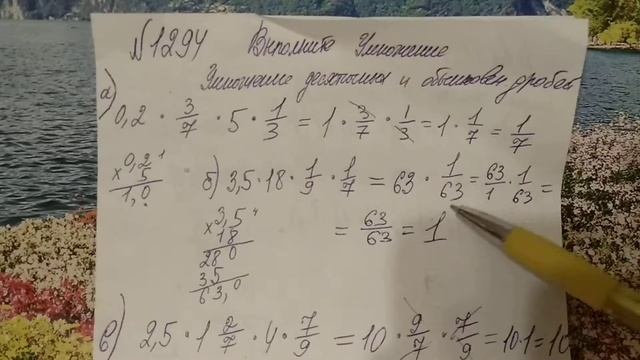 №1294 Выполните Умножение
Умножение десятичных и обыкновен дробей
а) 0,2 · 3/7 · 5 · 1/3 = 1 · 3/7 · 1/3 = 1 · 1/7 = 1/7
× 0,2 1
5
1,0
б) 3,5 · 18 · 1/9 · 1/7 = 63 · 1/63 = 63/1 · 1/63 =
= 63/63 = 1
× 3,5 4
18
280
35
63,0
в) 2,5 · 1 2/7 · 4 · 7/9 = 10 · 9/7 · 7/9 = 10·1 = 10